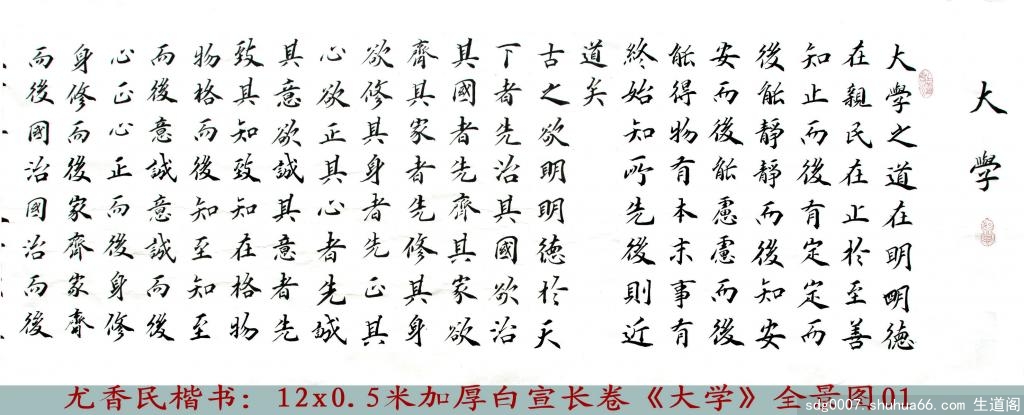 大學
大學之道在明明德
在親民在止於至善
知止而後有定定而
後能靜靜而後知安
安而後能慮慮而後
能得物有本末事有
終始知所先後則近
道矣
古之欲明明德於天
下者先治其國欲治
其國者先齊其家欲
齊其家者先修其身
欲修其身者先正其
心欲正其心者先誠
其意欲誠其意者先
致其知致知在格物
物格而後知至知至
而後意誠意誠而後
心正心正而後身修
身修而後家齊家齊
而後國治國治而後
尤香民楷书：12x0.5米加厚白宣长卷《大学》全景图01
sdg0007.shuhua66.com 生道阁